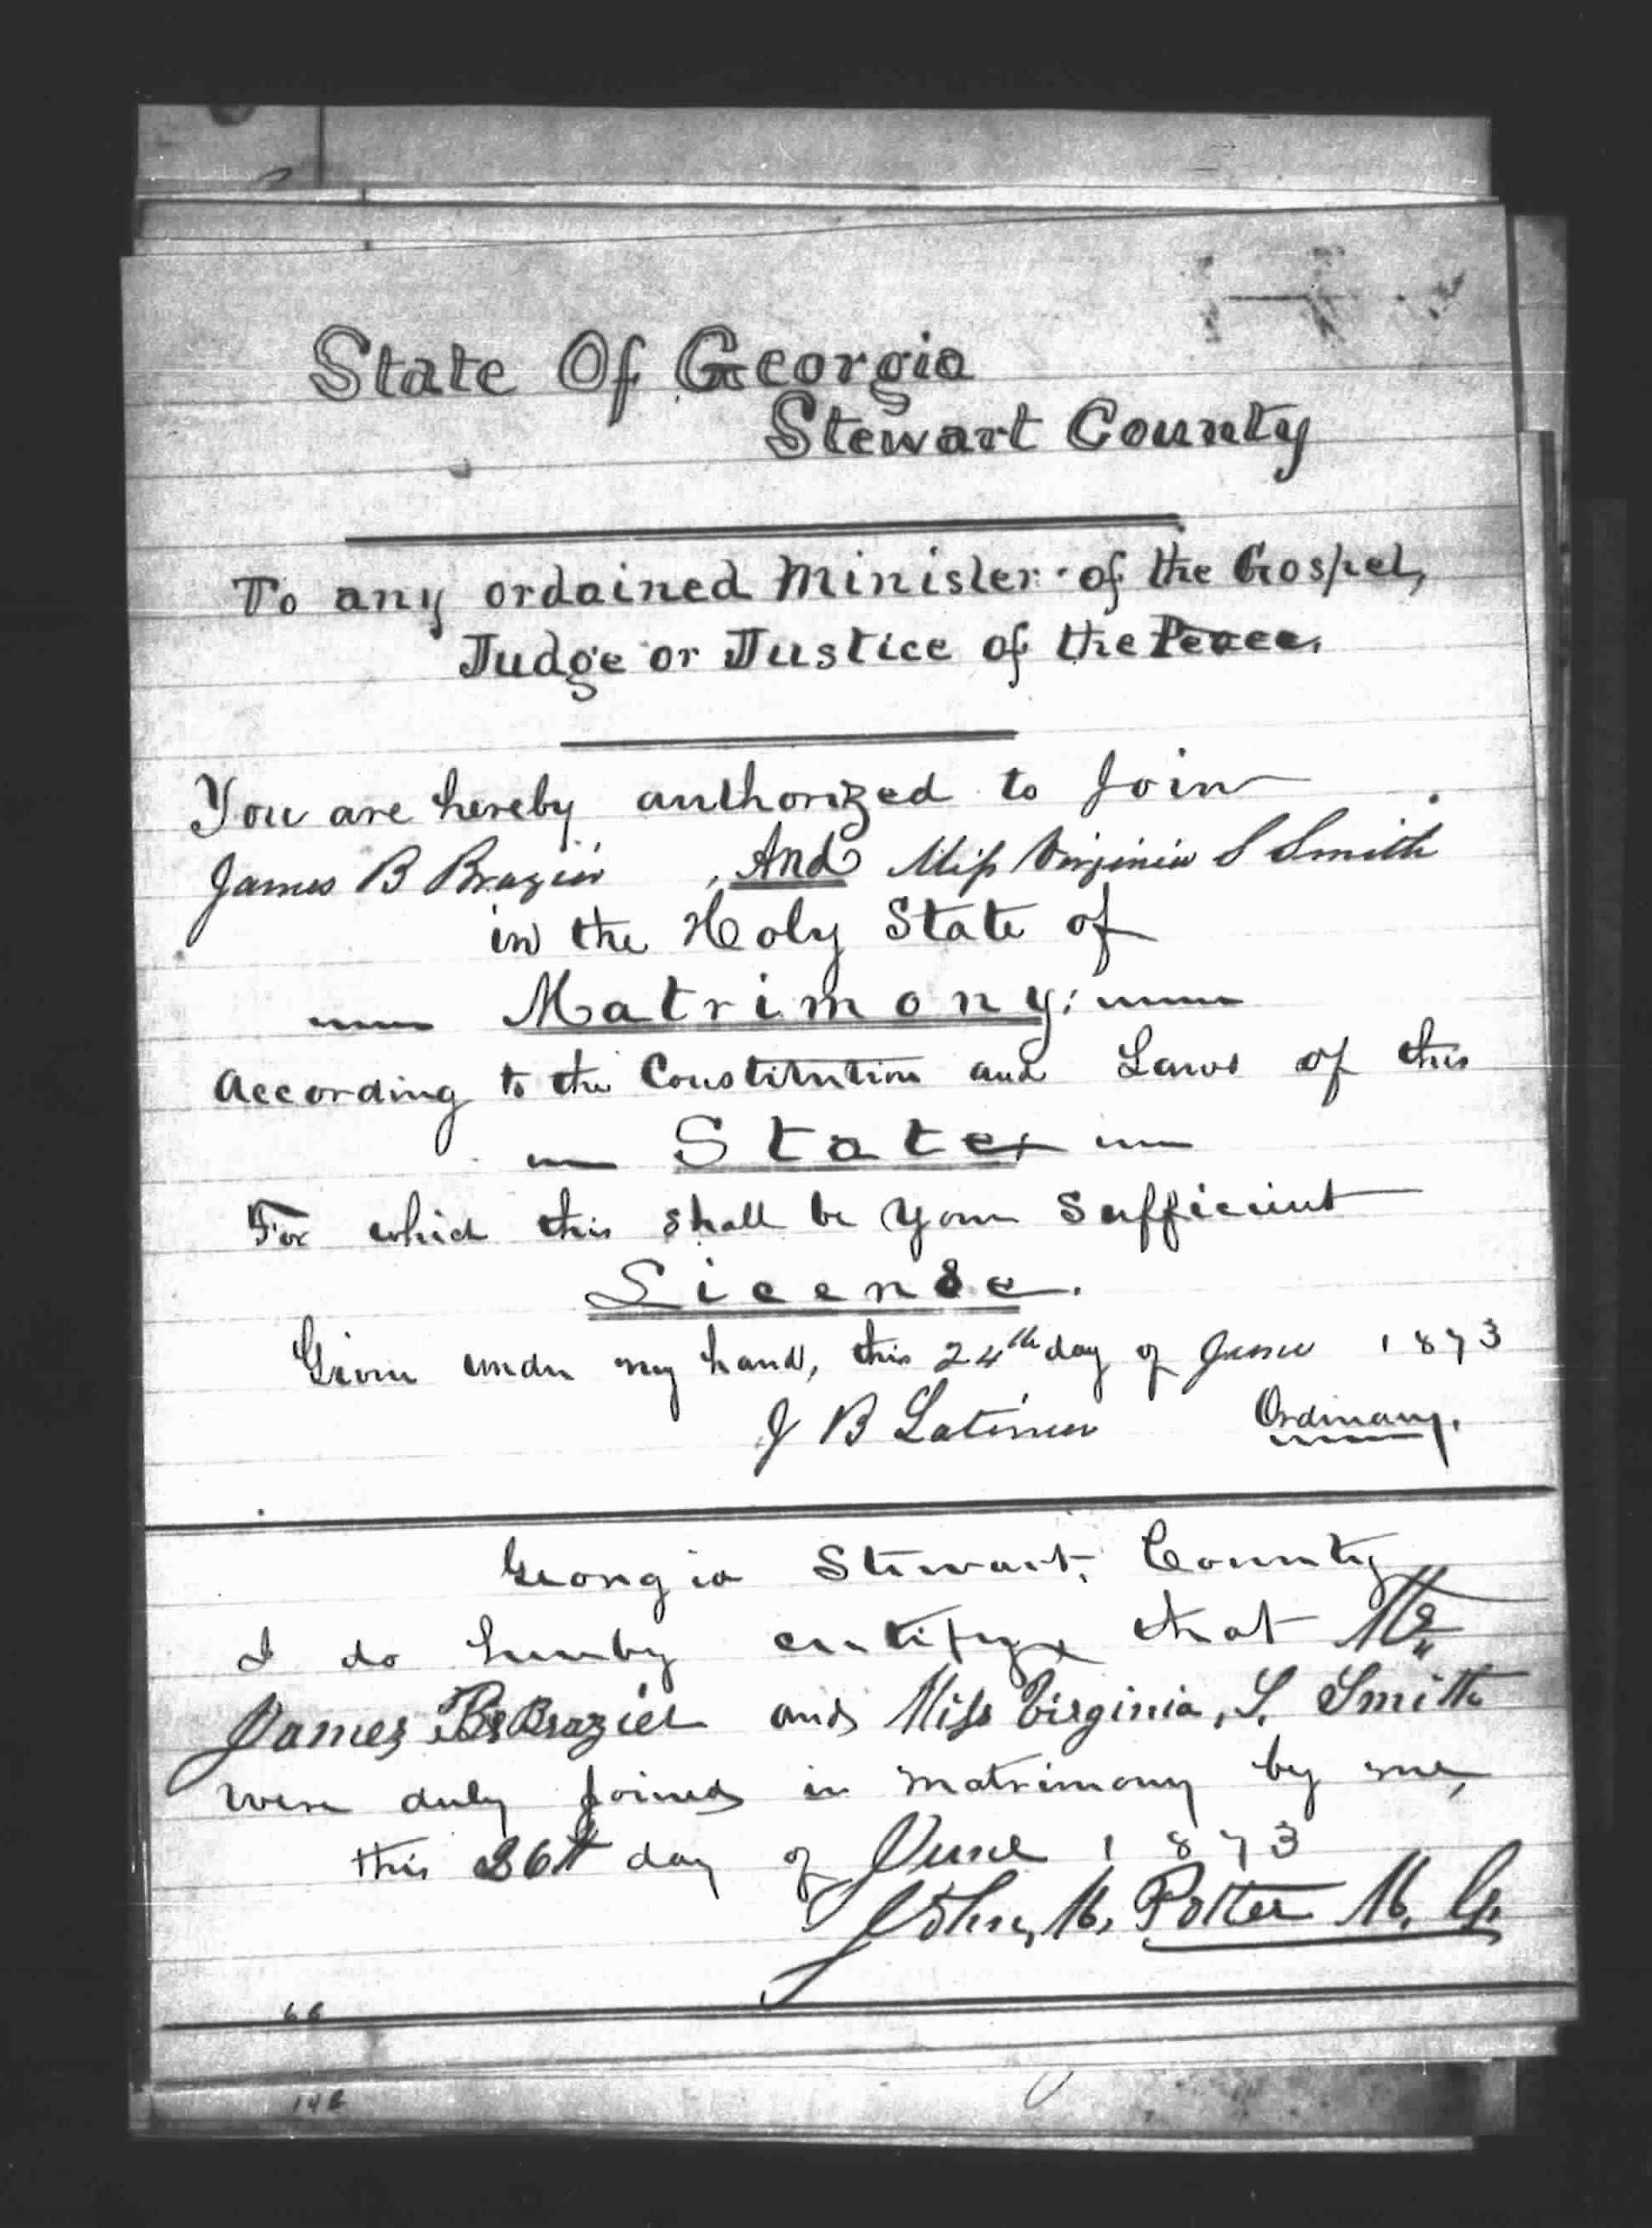 State Of Georgia
Stewart County
To any ordained Minister of the Gospel,
Judge or Justice of the Peace.
You are hereby authorized to Join
James B Brazier, And Miss Virginia S Smith
in the Holy State of
Matrimony:
According to the Constitution and Laws of this
State
For which this shall be your Sufficient
License.
Given under my hand, this 24th day of June 1873
J B Latimer Ordinary.
Georgia Stewart County
I do hereby certify that Mr
James B Brazier and Miss Virginia, S. Smith
were duly joined in matrimony by me,
this 26th day of June 1873
John, M. Potter M. G.
68
146